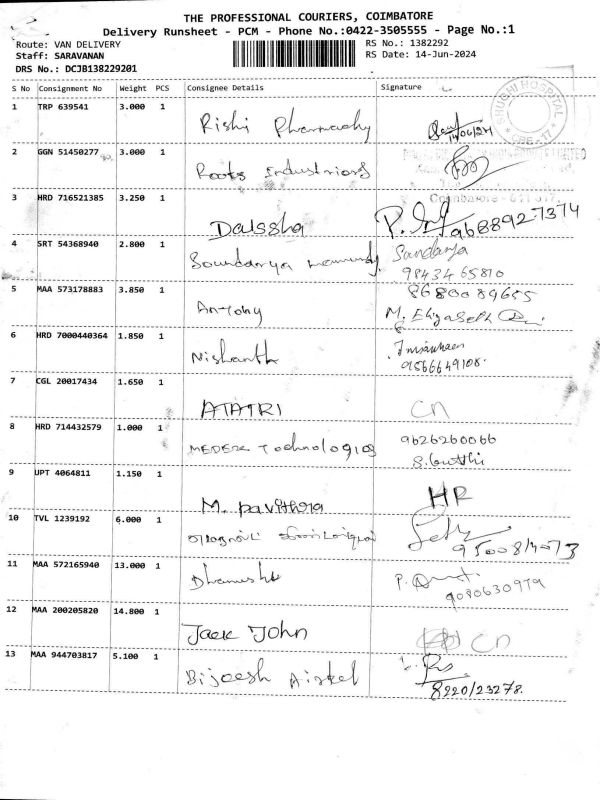 THE PROFESSIONAL COURIERS, COIMBATORE
Delivery Runsheet - PCM - Phone No.:0422-3505555 - Page No.:1
Route: VAN DELIVERY
RS No.: 1382292
Staff: SARAVANAN
RS Date: 14-Jun-2024
DRS No.: DCJB138229201
S No Consignment No Weight PCS Consignee Details Signature
1 TRP 639541 3.000 1
Rishi Pharmacy 14/06/24
SHUBHI HOSPITAL CBE-17
2 GGN 51450277 3.000 1
Roots Industries
Coimbatore - 641 017.
3 HRD 716521385 3.250 1
Daissha 9688927374
4 SRT 54368940 2.800 1
Soundarya Sandarya
9843465810
5 MAA 573178883 3.850 1 8680089655
Antony M. Elizabeth
6 HRD 7000440364 1.850 1
Nishanth 9566649108.
7 CGL 20017434 1.650 1
ATATRI CN
8 HRD 714432579 1.000 1 9626260066
MEDERK Technologies
9 UPT 4064811 1.150 1
M. pavithra HR
10 TVL 1239192 6.000 1
11 MAA 572165940 13.000 1
Dhanush 9080630979
12 MAA 200205820 14.800 1
Jack John CN
13 MAA 944703817 5.100 1
Bijeesh Airtel
8220123278.